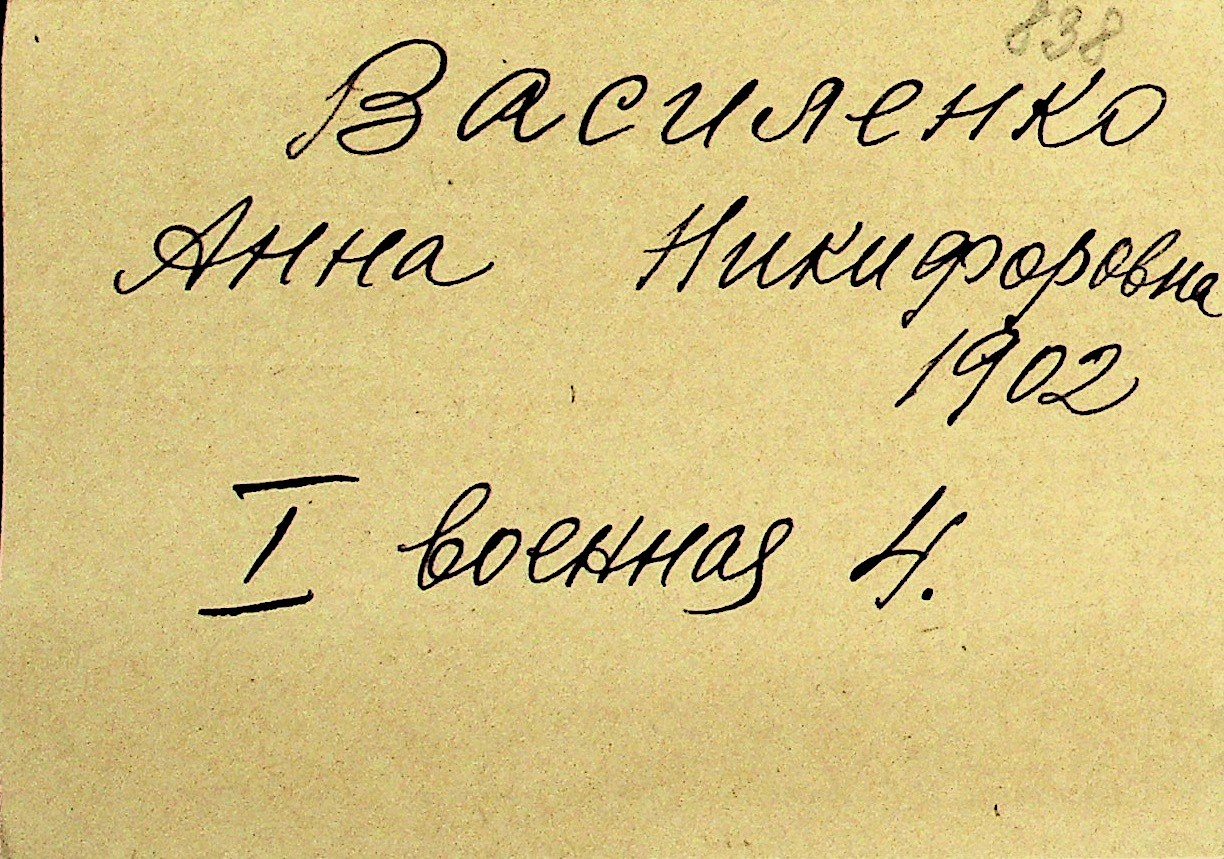 838
Василенко
Анна Никифоровна
1902
I военная 4.